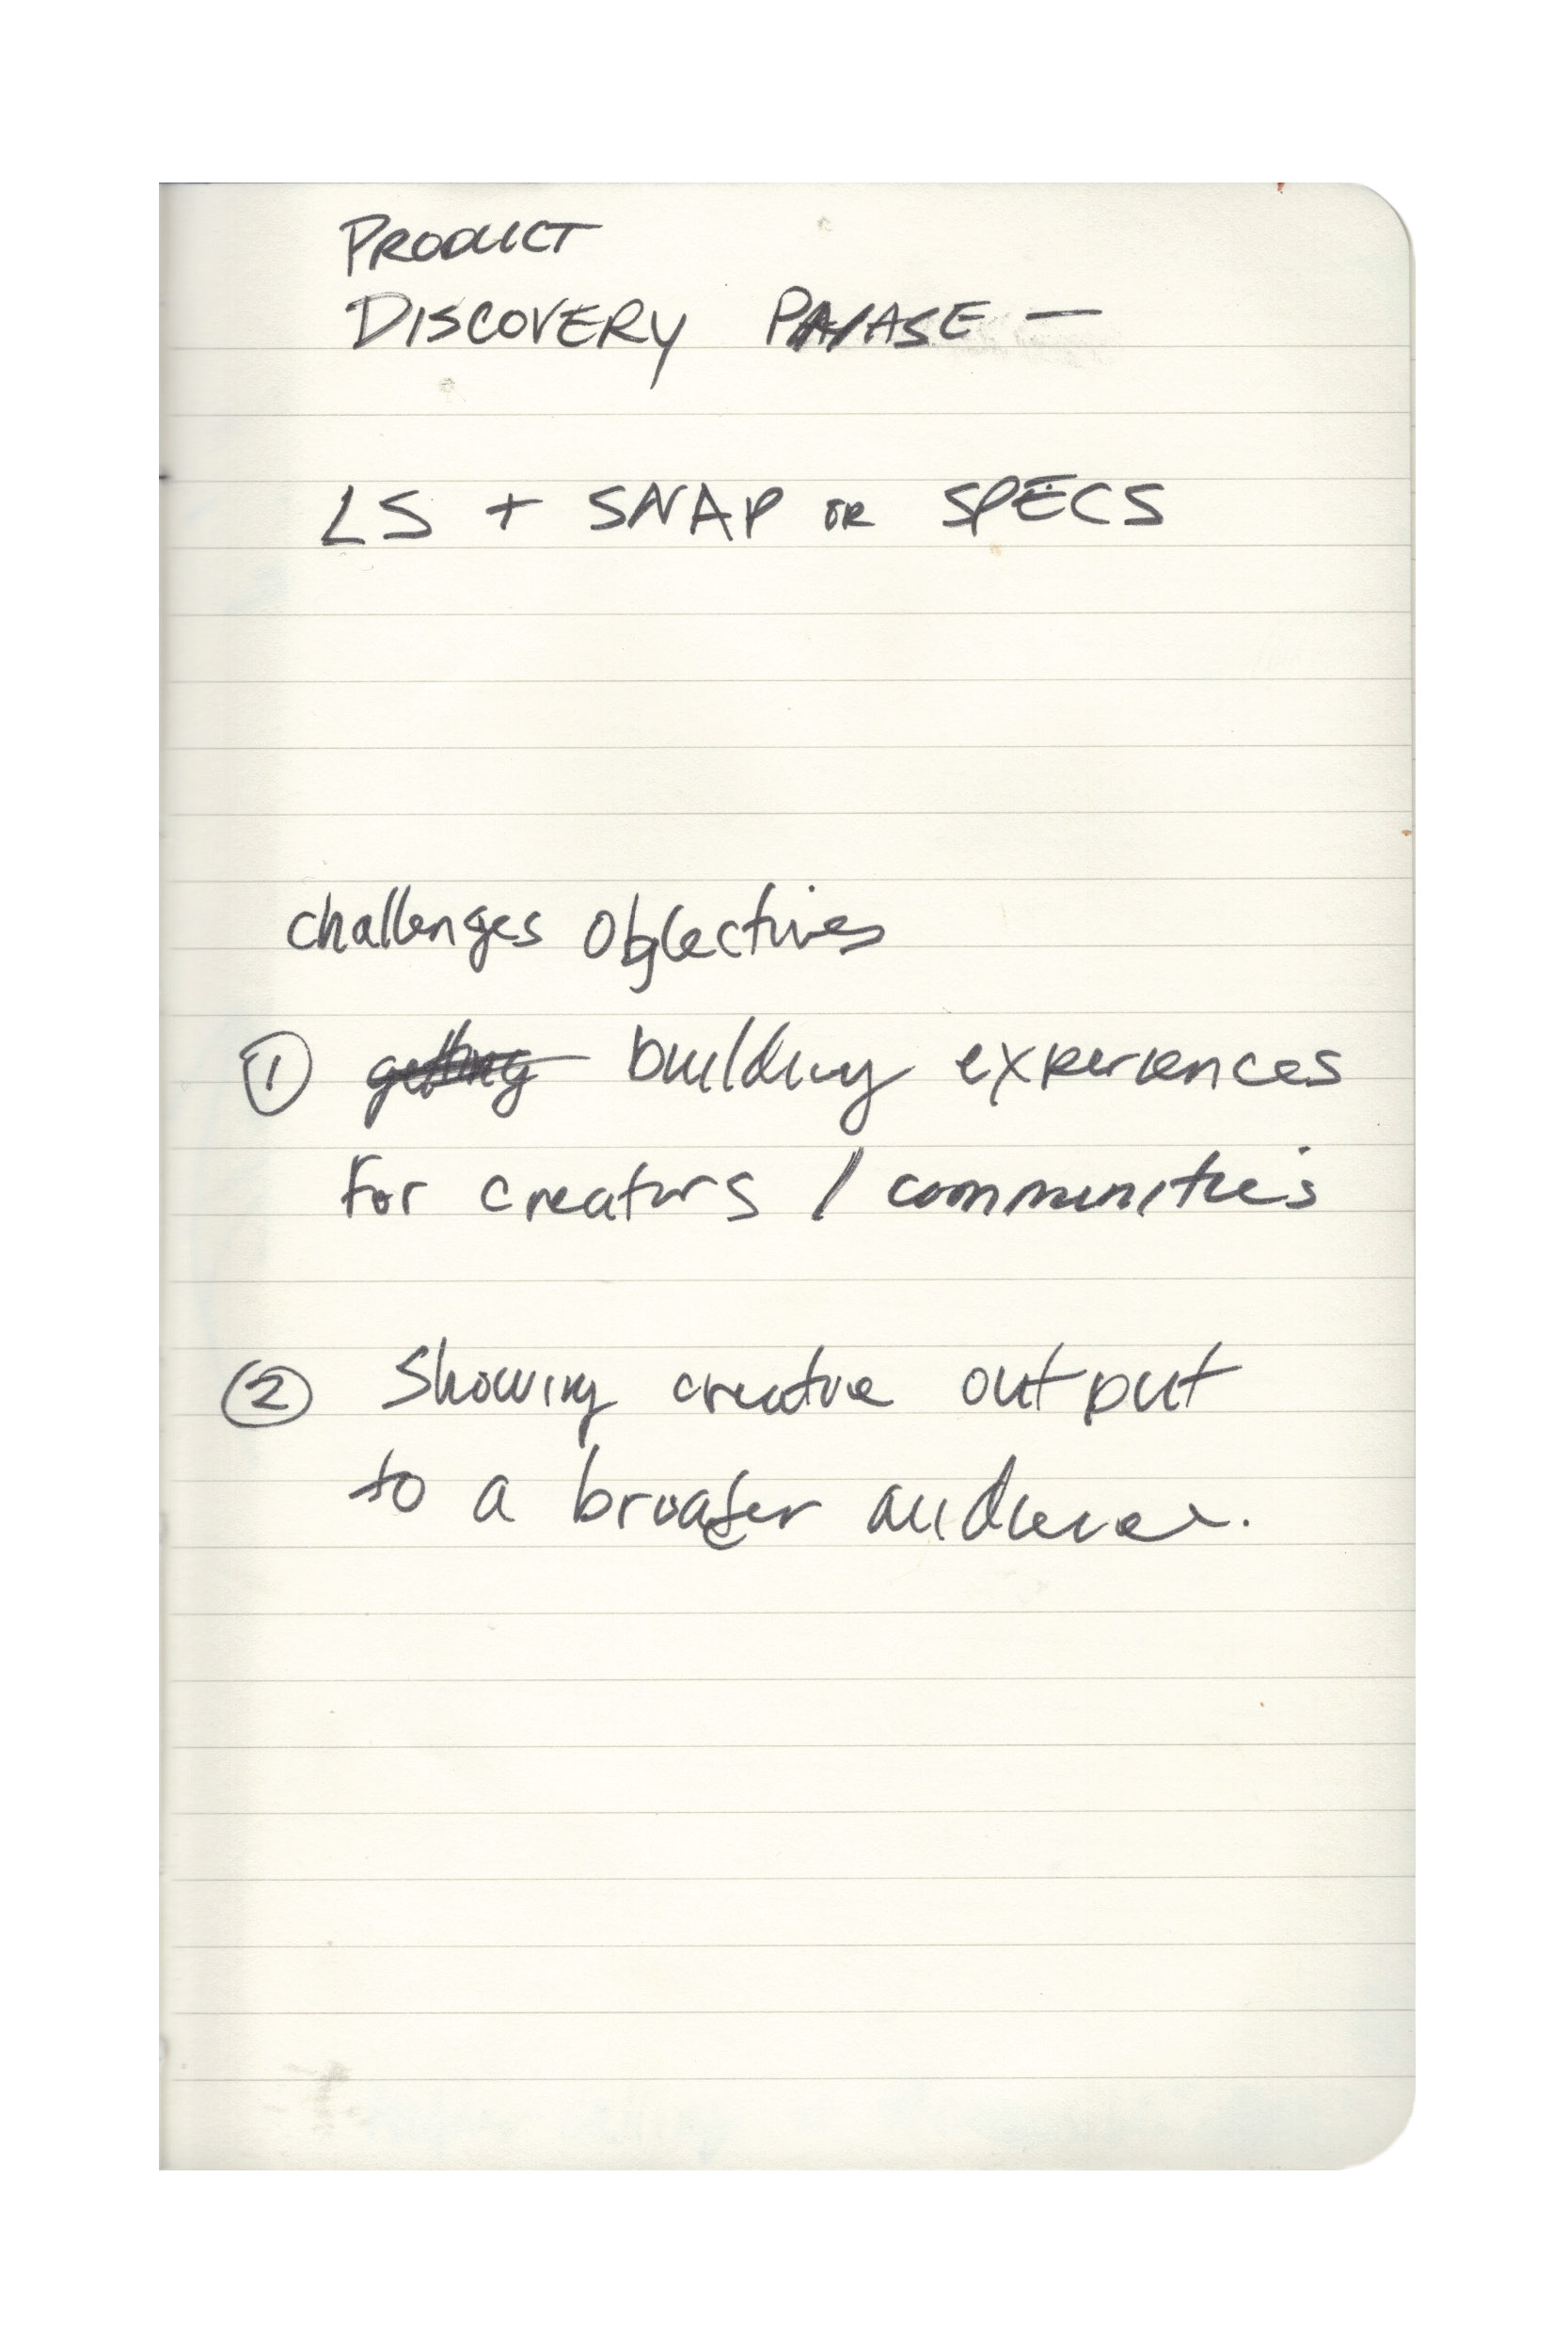 PRODUCT
DISCOVERY PHASE —
LS + SNAP OR SPECS
challenges Objectives
① getting building experiences
for creators / communities
② Showing creative output
to a broader audience.